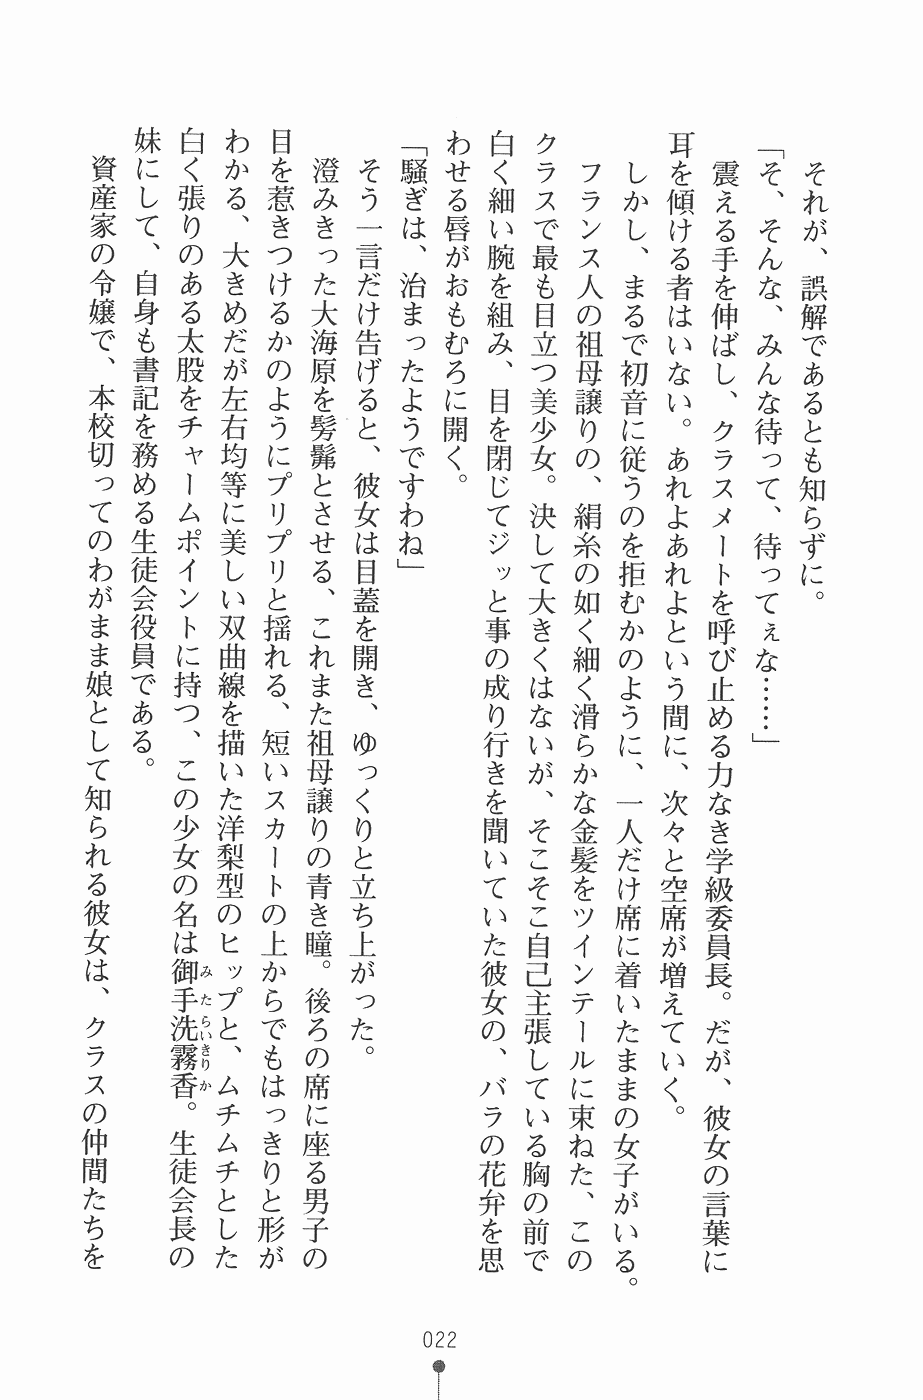 それが、誤解であるとも知らずに。
「そ、そんな、みんな待って、待ってぇな……」
震える手を伸ばし、クラスメートを呼び止める力なき学級委員長。だが、彼女の言葉に
耳を傾ける者はいない。あれよあれよという間に、次々と空席が増えていく。
しかし、まるで初音に従うのを拒むかのように、一人だけ席に着いたままの女子がいる。
フランス人の祖母譲りの、絹糸の如く細く滑らかな金髪をツインテールに束ねた、この
クラスで最も目立つ美少女。決して大きくはないが、そこそこ自己主張している胸の前で
白く細い腕を組み、目を閉じてジッと事の成り行きを聞いていた彼女の、バラの花弁を思
わせる唇がおもむろに開く。
「騒ぎは、治まったようですわね」
そう一言だけ告げると、彼女は目蓋を開き、ゆっくりと立ち上がった。
澄みきった大海原を髣髴とさせる、これまた祖母譲りの青き瞳。後ろの席に座る男子の
目を惹きつけるかのようにプリプリと揺れる、短いスカートの上からでもはっきりと形が
わかる、大きめだが左右均等に美しい双曲線を描いた洋梨型のヒップと、ムチムチとした
白く張りのある太股をチャームポイントに持つ、この少女の名は御手洗霧香。生徒会長の
みたらいきりか
妹にして、自身も書記を務める生徒会役員である。
資産家の令嬢で、本校切ってのわがまま娘として知られる彼女は、クラスの仲間たちを
022